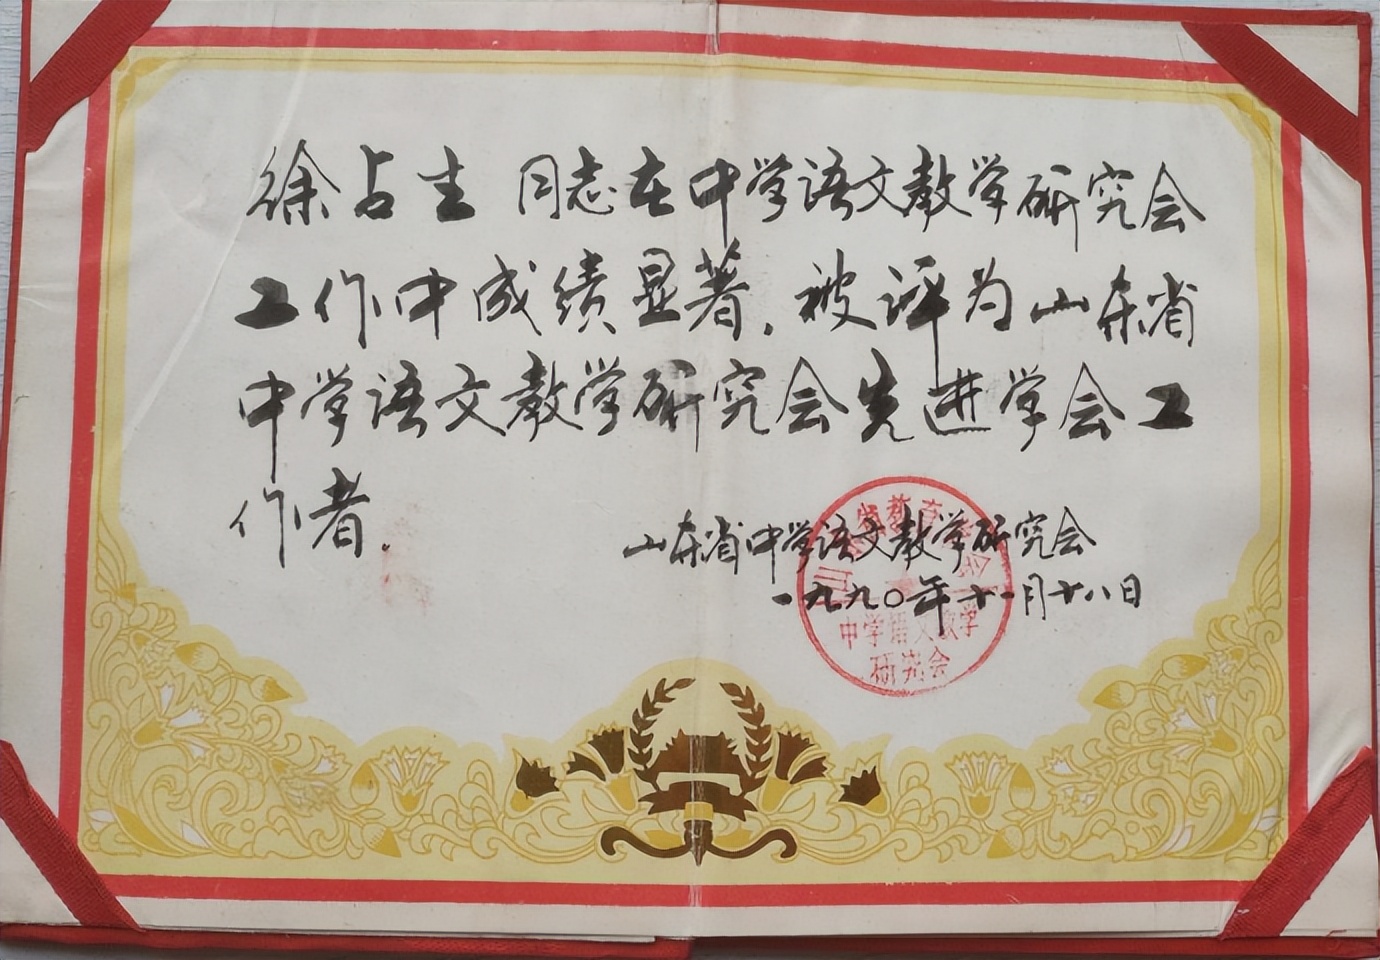 徐占生 同志在中学语文教学研究会
工作中成绩显著,被评为山东省
中学语文教学研究会先进学会工
作者.
山东省中学语文教学研究会
一九九〇年十一月十八日
中学语文教学
研究会